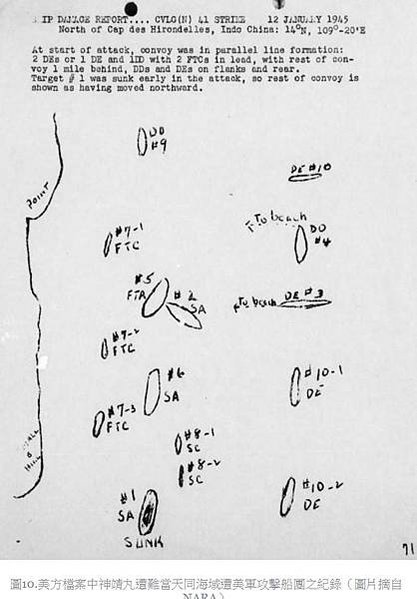 IP DAMAGE REPORT.... CVLG(N) 41 STRIKE 12 JANUARY 1945
North of Cap des Hirondelles, Indo China: 14°N, 109°-20'E
At start of attack, convoy was in parallel line formation:
2 DEs or 1 DE and 1DD with 2 FTCs in lead, with rest of con-
voy 1 mile behind, DDs and DEs on flanks and rear.
Target # 1 was sunk early in the attack, so rest of convoy is
shown as having moved northward.
DD
#9
DE #10
POINT
To beach
DD
#4
#7-1
FTC
#5
FTA
#2
SA
To beach
DE #3
#7-2
FTC
#6
SA
#10-1
DE
#7-3
FTC
#8-1
SC
#8-2
SC
HILL
#1
SA
SUNK
#10-2
DE
71
圖10.美方檔案中神靖丸遭難當天同海域遭美軍攻擊船團之紀錄（圖片摘自
NARA）